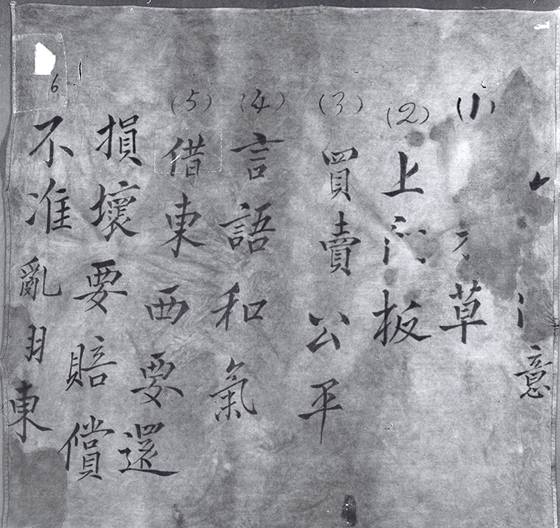 意
(1) 草
(2) 上門板
(3) 買賣公平
(4) 言語和氣
(5) 借東西要還
損壞要賠償
不准亂
東
6